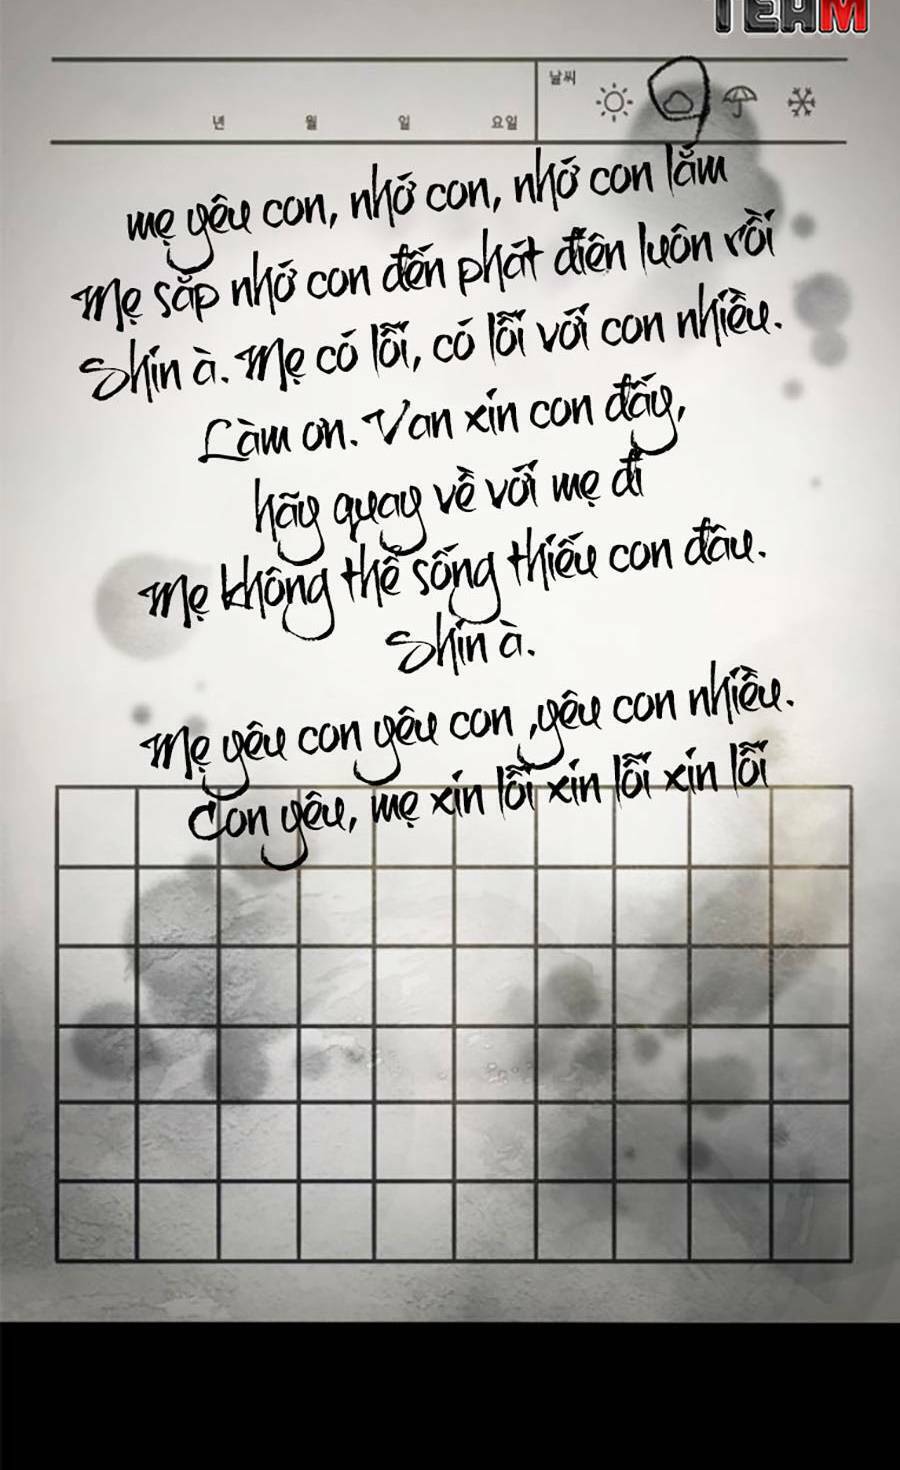 TEAM
날씨
년 월 일 요일
mẹ yêu con, nhớ con, nhớ con lắm
Mẹ sắp nhớ con đến phát điên luôn rồi
Shin à. Mẹ có lỗi, có lỗi với con nhiều.
Làm ơn. Van xin con đấy,
hãy quay về với mẹ đi
Mẹ không thể sống thiếu con đâu.
Shin à.
Mẹ yêu con yêu con ,yêu con nhiều.
Con yêu, mẹ xin lỗi xin lỗi xin lỗi